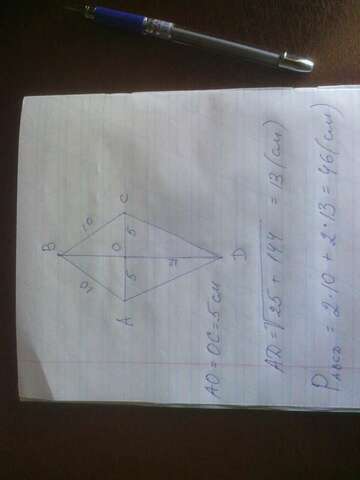 B
10 10
A 5 O 5 C
D
AO = OC = 5 см
AD = √25 + 144 = 13 (см)
P ABCD = 2·10 + 2·13 = 46 (см)